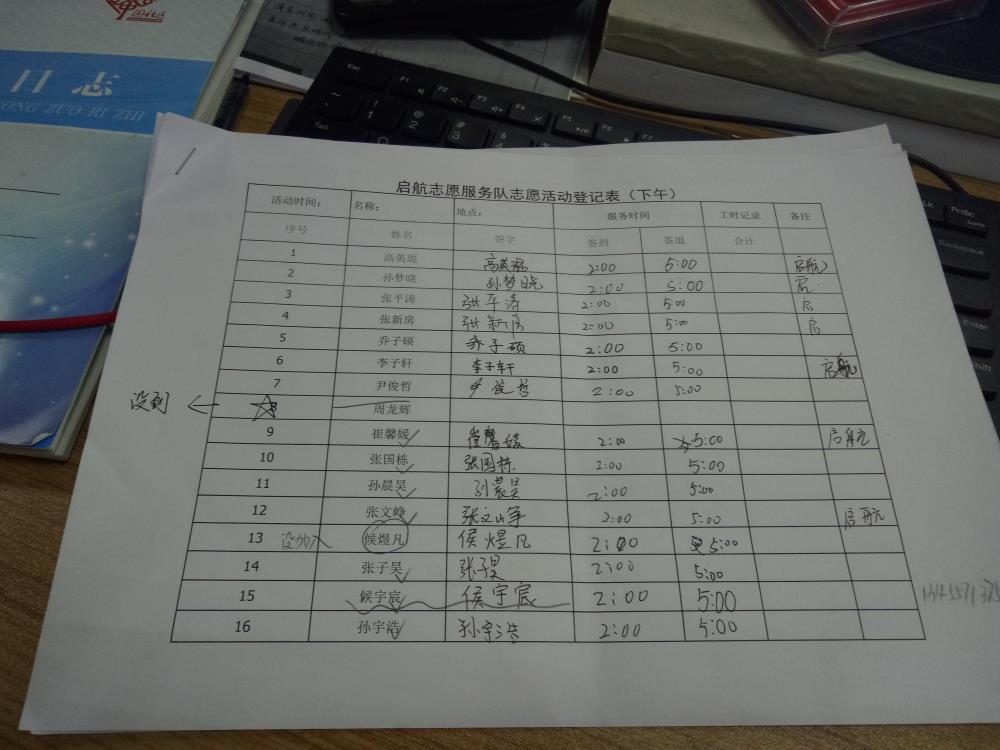 日志
ONG ZUO RI ZHI
Esc F1 F2 F3 F4 F5 F6 F7
Tab
PrtSc
Backspace
Enter
Shift
启航志愿服务队志愿活动登记表（下午）
活动时间： 名称： 地点： 服务时间 工时记录 备注
序号 姓名 签字 签到 签退 合计
1 高英琨 高英琨 2:00 5:00 启航
2 孙梦晓 孙梦晓 2:00 5:00 启
3 张平涛 张平涛 2:00 5:00 启
4 张新房 张新房 2:00 5:00 启
5 乔子硕 乔子硕 2:00 5:00
6 李子轩 李子轩 2:00 5:00 启航
7 尹俊哲 尹俊哲 2:00 5:00
没到 8 周龙辉
9 崔馨媛 崔馨媛 2:00 5:00 启航
10 张国栋 张国栋 2:00 5:00
11 孙晨昊 孙晨昊 2:00 5:00
12 张文峥 张文峥 2:00 5:00 启航
13 没加入 候煜凡 侯煜凡 2:00 5:00
14 张子昊 张子昊 2:00 5:00
15 候宇宸 侯宇宸 2:00 5:00
16 孙宇浩 孙宇浩 2:00 5:00